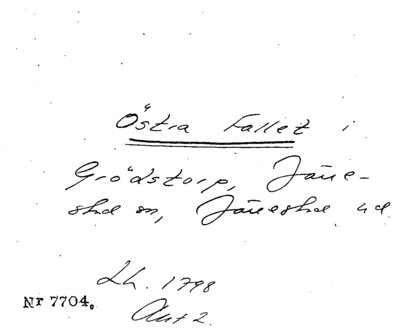 Östra Fallet i
Grödstorp, Jäne-
shd sn, Jäneshd hd
Lh. 1798
Akt 2.
Nr 7704.